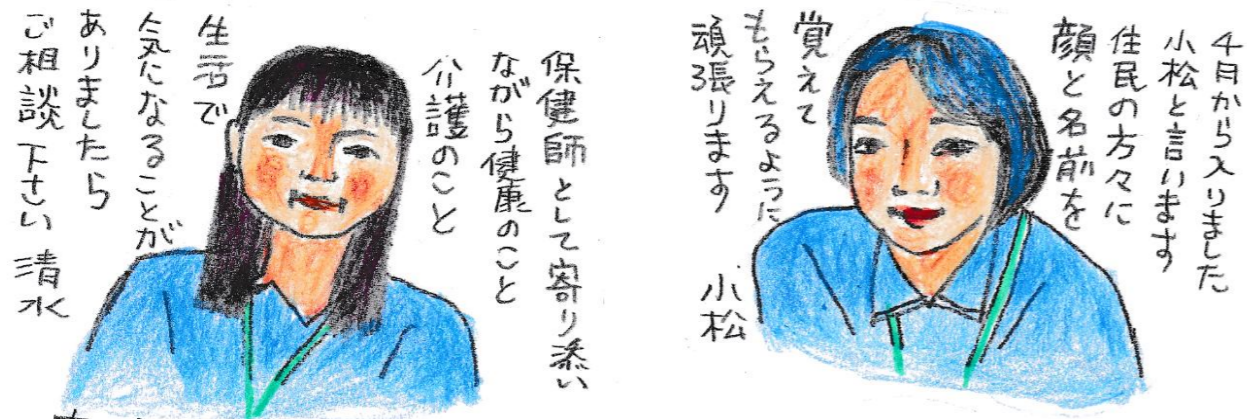 4月から入りました
小松と言います
住民の方々に
顔と名前を
覚えて
もらえるように
頑張ります
小松
保健師として寄り添い
ながら健康のこと
介護のこと
生活で
気になることが
ありましたら
ご相談下さい 清水